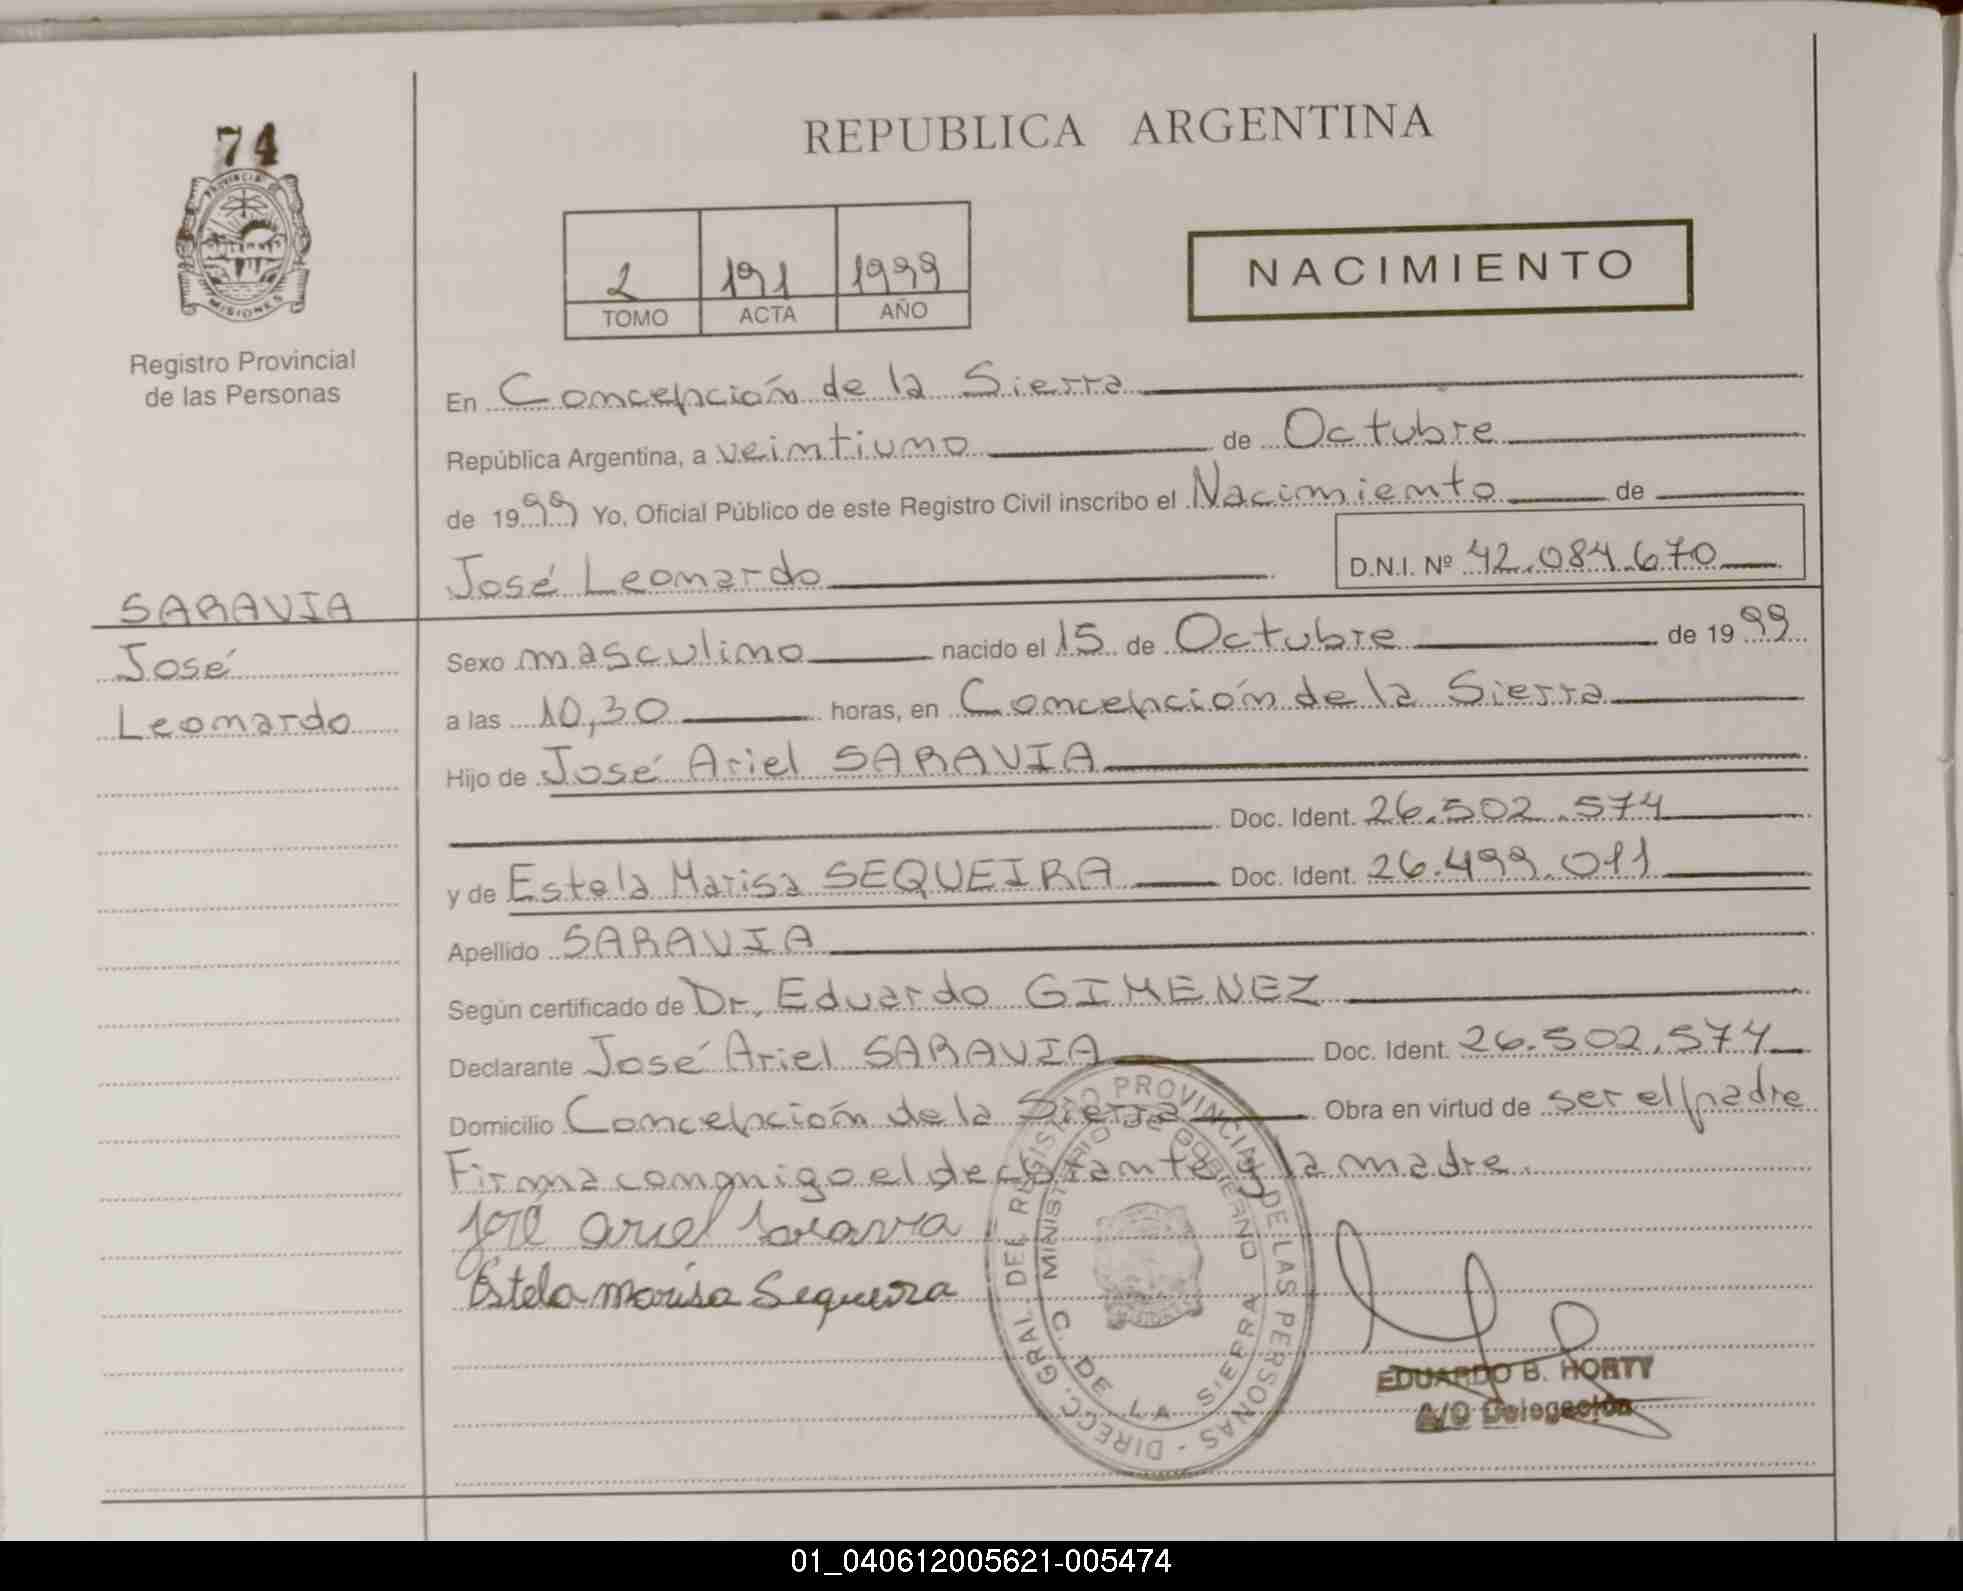 74
PROVINCIA DE
MISIONES
Registro Provincial
de las Personas
REPUBLICA ARGENTINA
2 191 1999
TOMO ACTA AÑO
NACIMIENTO
En Concepción de la Sierra
República Argentina, a veintiuno de Octubre
de 1999 Yo, Oficial Público de este Registro Civil inscribo el Nacimiento de
José Leonardo D.N.I. Nº 42.084.670
SARAVIA
José
Leonardo
Sexo masculino nacido el 15 de Octubre de 1999
a las 10,30 horas, en Concepción de la Sierra
Hijo de José Ariel SARAVIA
Doc. Ident. 26.502.574
y de Estela Marisa SEQUEIRA Doc. Ident. 26.499.011
Apellido SARAVIA
Según certificado de Dr. Eduardo GIMENEZ
Declarante José Ariel SARAVIA Doc. Ident. 26.502.574
Domicilio Concepción de la Sierra Obra en virtud de ser el padre
Firma conmigo el declarante y la madre.
José Ariel Saravia
Estela Marisa Sequeira
DIRECC. GRAL. DEL REGISTRO PROVINCIAL DE LAS PERSONAS -
MINISTERIO DE GOBIERNO
C. DE LA SIERRA
EDUARDO B. HORTY
A/C Delegación
01_040612005621-005474